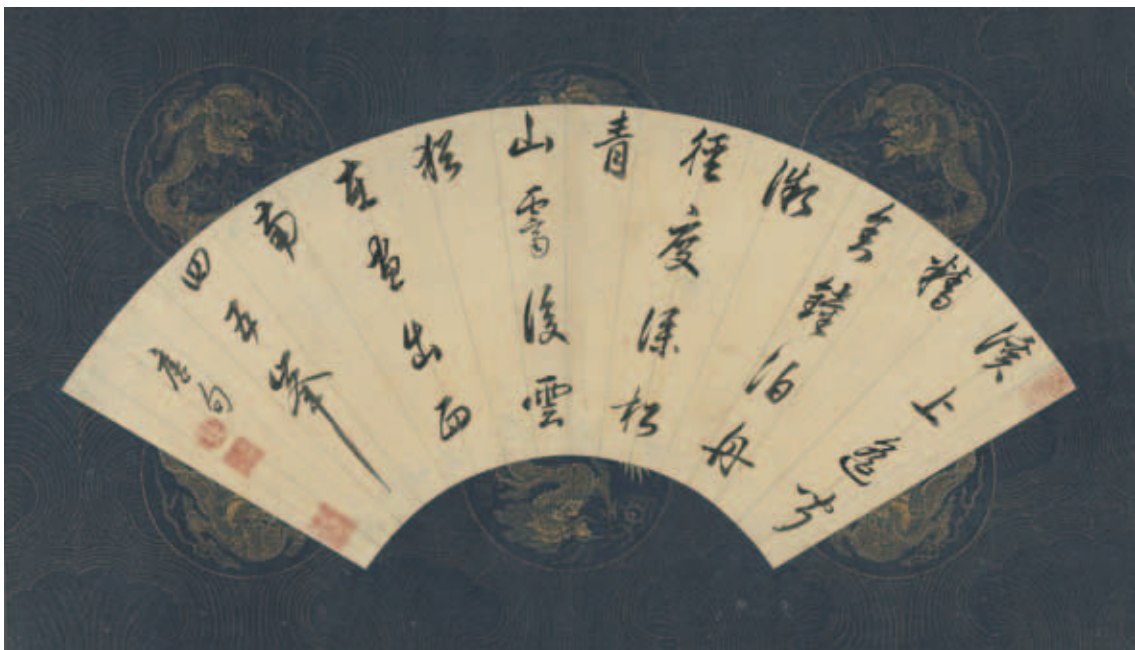 溪上遙聞
精
舍鐘泊舟
微
徑度深松
青
山霽後雲
猶
在畫出西
南
四五峯
唐句